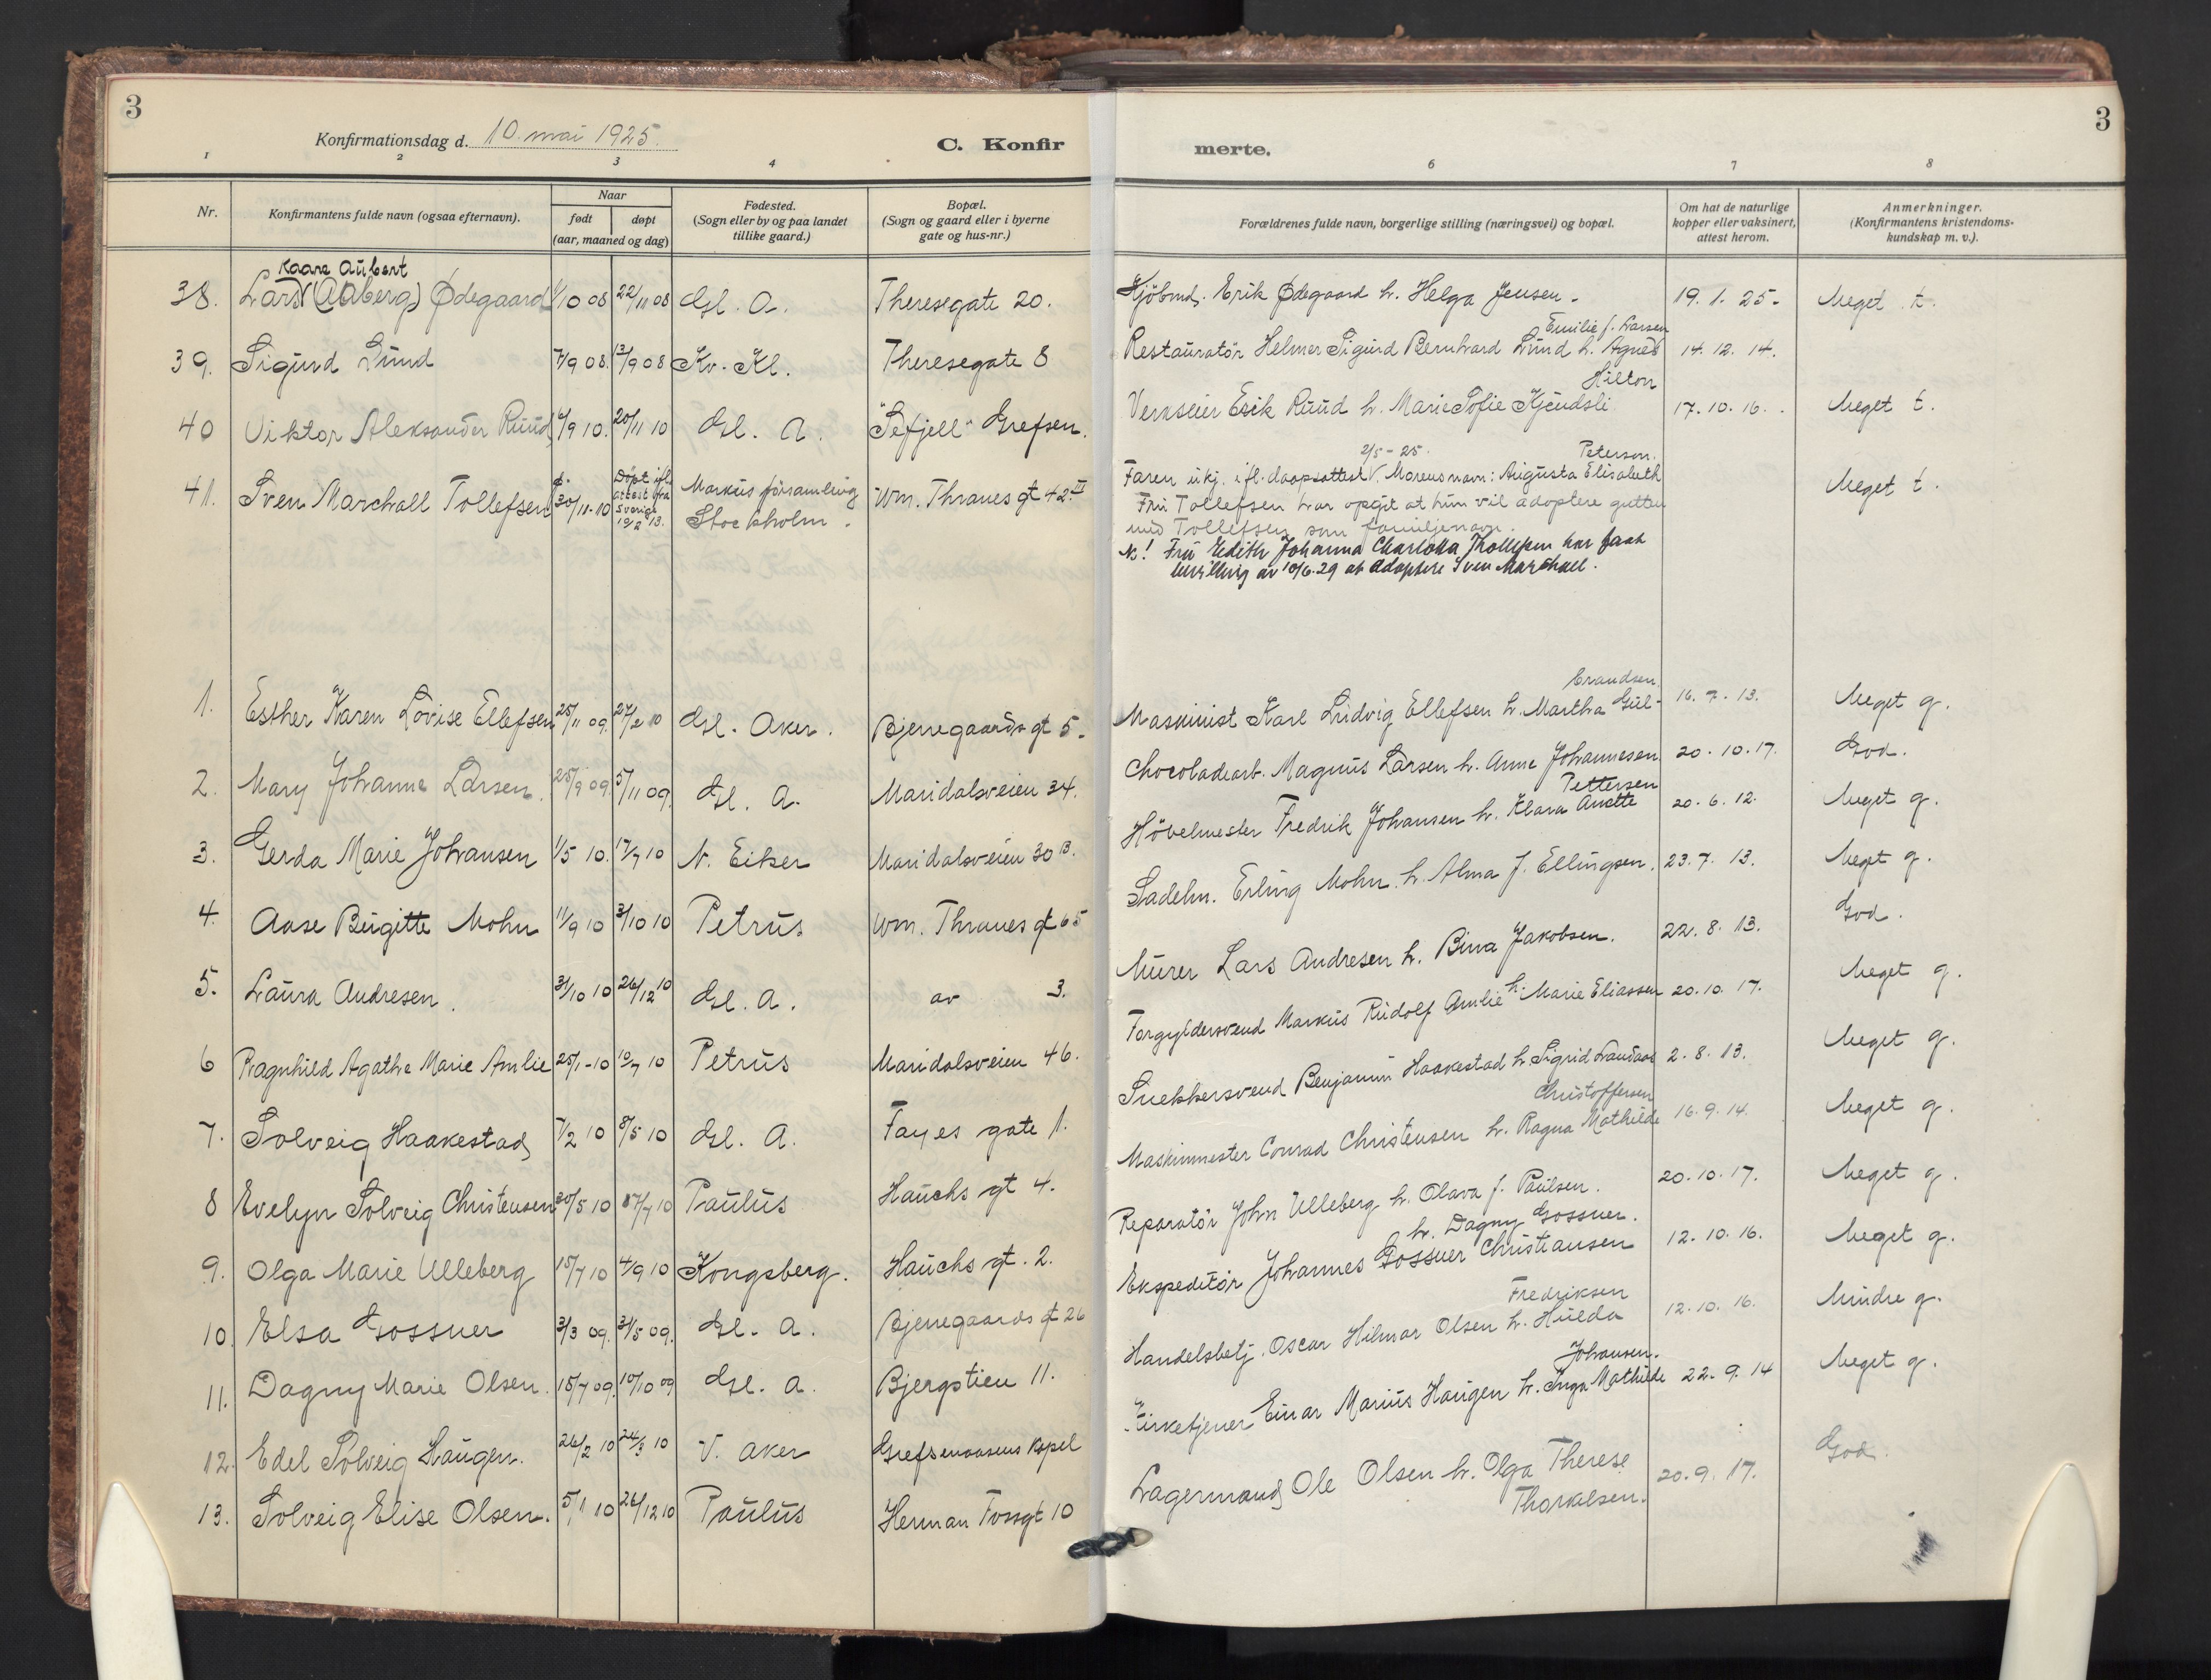 3
Konfirmationsdag d. 10. mai 1925.
C. Konfir
1 2 3 4
Nr.
Konfirmantens fulde navn (ogsaa efternavn).
Naar
født døpt
(aar, maaned og dag)
Fødested.
(Sogn eller by og paa landet
tillike gaard.)
Bopæl.
(Sogn og gaard eller i byerne
gate og hus-nr.)
Kaare Aubert
38. Lars (Aaberg) Ødegaard 1/10 08 22/11 08 Gl. A. Theresegate 20.
39. Sigurd Lund 7/9 08. 13/9 08 Kv. Kl. Theresegate 8
40 Viktor Aleksander Ruud 6/9 10. 20/11 10 Gl. A. "Sefjell" Grefsen.
41. Sven Marchall Tollefsen 30/11-10 Døpt ifl. attest fra Sverige 19/2 13. Markus församling Stockholm. Wm. Thranes gt 42 III
1. Esther Karen Lovise Ellefsen 25/11 09. 27/2 10 Gl. Aker. Bjerregaards gt 5.
2. Mary Johanne Larsen. 25/9 09. 5/11 09. Gl. A. Maridalsveien 34.
3. Gerda Marie Johansen 1/5 10. 17/7 10 N. Eiker Maridalsveien 30 B.
4. Aase Birgitte Mohn 11/9 10 3/10 10 Petrus Wm. Thranes gt 65
5. Laura Andresen. 31/10 10 26/12 10 Gl. A. av 3.
6 Ragnhild Agathe Marie Amlie 25/1-10 10/7 10 Petrus Maridalsveien 46.
7. Solveig Haakestad 7/2 10 8/5 10 Gl. A. Fayes gate 1.
8 Evelyn Solveig Christensen 30/5 10 17/7 10 Paulus Hauchs gt 4.
9. Olga Marie Ulleberg 15/7 10 4/9 10 Kongsberg. Hauchs gt. 2.
10. Elsa Gossner 3/3 09. 31/5 09. Gl. A. Bjerregaards gt 26
11. Dagny Marie Olsen. 15/7 09. 10/10 09 Gl. A. Bjergstien 11.
12. Edel Solveig Haugen. 26/2 10 24/3 10 V. Aker Grefsenaasens Kapel
13. Solveig Elise Olsen. 5/1 10 26/12 10 Paulus Herman Fossgt 10
3
merte.
6 7 8
Forældrenes fulde navn, borgerlige stilling (næringsvei) og bopæl.
Om hat de naturlige
kopper eller vaksinert,
attest herom.
Anmerkninger.
(Konfirmantens kristendoms-
kundskap m. v.).
Kjöbmd. Erik Ødegaard h. Helga Jensen. 19. 1. 25. Meget t.
Emilie f. Larsen
Restauratör Helmer Sigurd Bernhard Lund h. Agnes 14. 12. 14.
Hilton
Verkseier Erik Ruud h. Marie Sofie Kjendsli 17. 10. 16. Meget t.
2/5-25. Peterson.
Faren ukj. ifl. daapsattest. Morens navn: Augusta Elisabeth Meget t.
Fru Tollefsen har opgit at hun vil adoptere gutten
med Tollefsen som familjenavn.
N! Fru Edith Johanna Charlotta Thollefsen har faat
bevilling av 10/6.29 at adoptere Sven Marshall.
Brandsen
Maskinist Karl Ludvig Ellefsen h. Martha Gul- 16. 7. 13. Meget g.
Chocoladearb. Magnus Larsen h. Anne Johannesen 20. 10. 17. God.
Pettersen
Hövelmester Fredrik Johansen h. Klara Anette 20. 6. 12. Meget g.
Sadelm. Erling Mohn h. Alma f. Ellingsen. 23. 7. 13. Meget g.
Murer Lars Andresen h. Bina Jakobsen. 22. 8. 13. God.
Forgyldersvend Markus Rudolf Amlie h. Marie Eliassen 20. 10. 17. Meget g.
Snekkersvend Benjamin Haakestad h. Sigrid Landaas 2. 8. 13. Meget g.
Christoffersen
Maskinmester Conrad Christensen h. Ragna Mathilde 16. 9. 14. Meget g.
Reparatör John Ulleberg h. Olava f. Paulsen. 20. 10. 17. Meget g.
h. Dagny Gossner.
Ekspeditör Johannes Gossner Christiansen 12. 10. 16. Meget g.
Fredriksen
Handelsbetj. Oscar Hilmar Olsen h. Hulda 12. 10. 16. Mindre g.
Johansen.
Kirketjener Einar Marius Haugen h. Inga Mathilde 22. 9. 14 Meget g.
Lagermand Ole Olsen h. Olga Therese 20. 9. 17. God.
Thorkelsen.